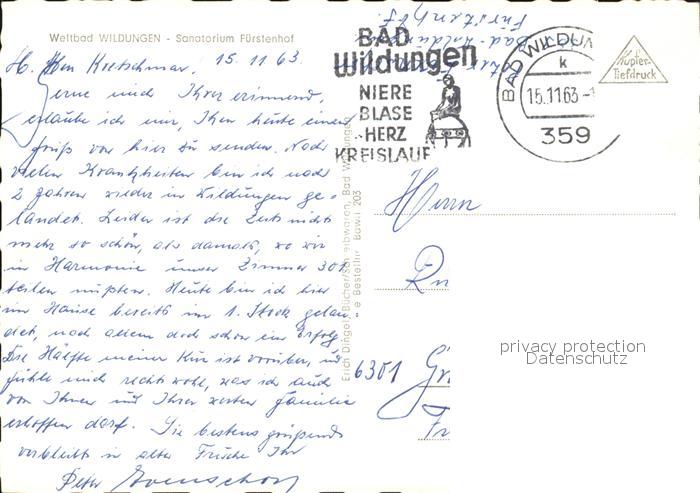 Weltbad WILDUNGEN - Sanatorium Fürstenhof
15. 11 63.
H. Herr Kretschmar,
Gerne mich Ihrer erinnernd,
erlaube ich mir, Ihnen heute einen
Gruß von hier zu senden. Nach
vielen Krankheiten bin ich nach
2 Jahren wieder in Wildungen ge-
landet. Leider ist die Zeit nicht
mehr so schön, als damals, wo wir
in Harmonie unser Zimmer 301
teilen mußten. Heute bin ich hier
im Hause bereits im 1. Stock gelan-
det, nach allem doch schon ein Erfolg.
Die Hälfte meiner Kur ist vorüber, und
fühle mich recht wohl, was ich auch
von Ihnen und Ihrer werten Familie
erhoffen darf. Sie bestens grüßend
verbleibt in alter Frische Ihr
Peter
Bad-Wildungen
Fürstenhof
BAD
Wildungen
NIERE
BLASE
HERZ
KREISLAUF
BAD WILDUN
k
15.11.63-1
359
Kupfer-
Tiefdruck
Erich Dingel, Bücher/Schreibwaren, Bad Wildungen
Bestellnr. Bawil 203
Herrn
6301
privacy protection
Datenschutz